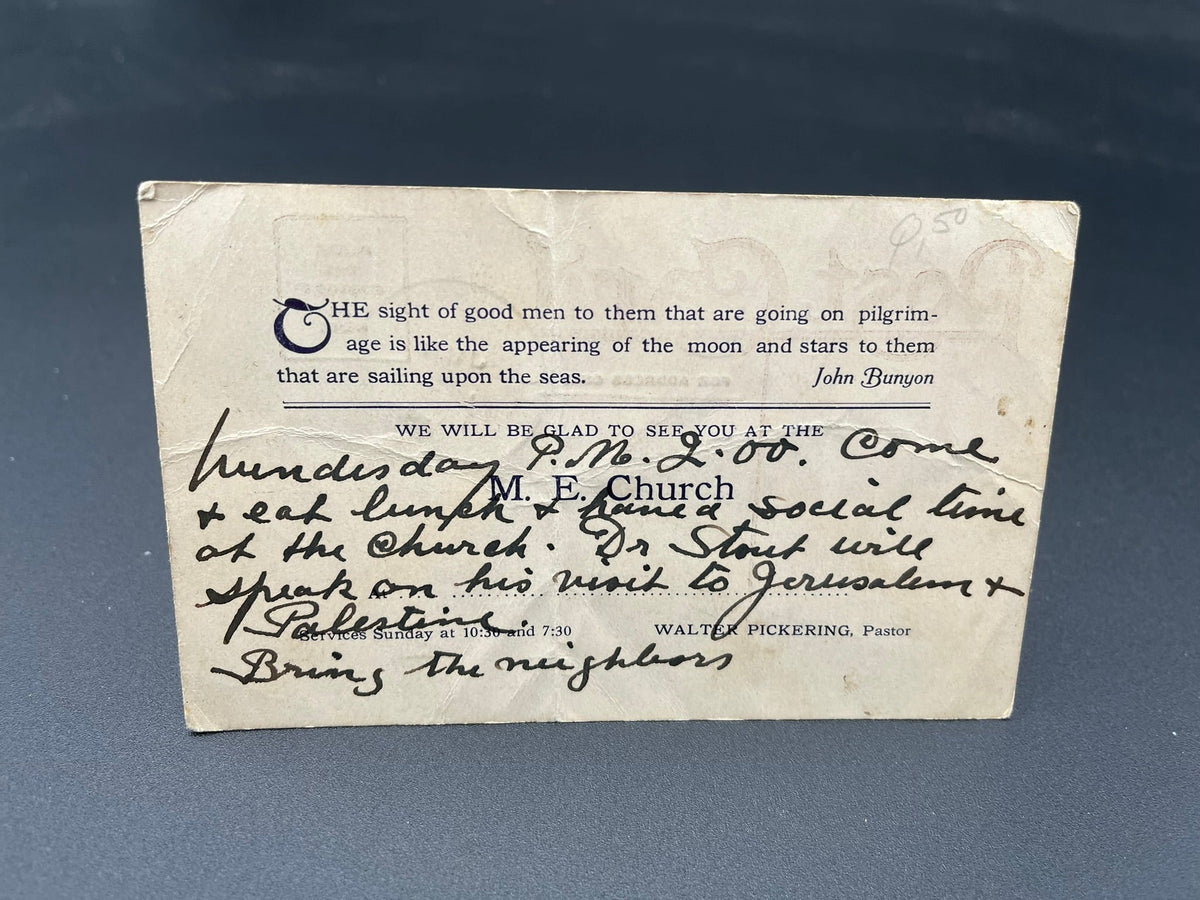 0,50
THE sight of good men to them that are going on pilgrim-
age is like the appearing of the moon and stars to them
that are sailing upon the seas. John Bunyon
WE WILL BE GLAD TO SEE YOU AT THE
P.M. 2.00. Come
M. E. Church
& eat lunch & have a social time
at the Church. Dr Stout will
speak on his visit to Jerusalem &
Palestine.
Services Sunday at 10:30 and 7:30 WALTER PICKERING, Pastor
Bring the neighbors